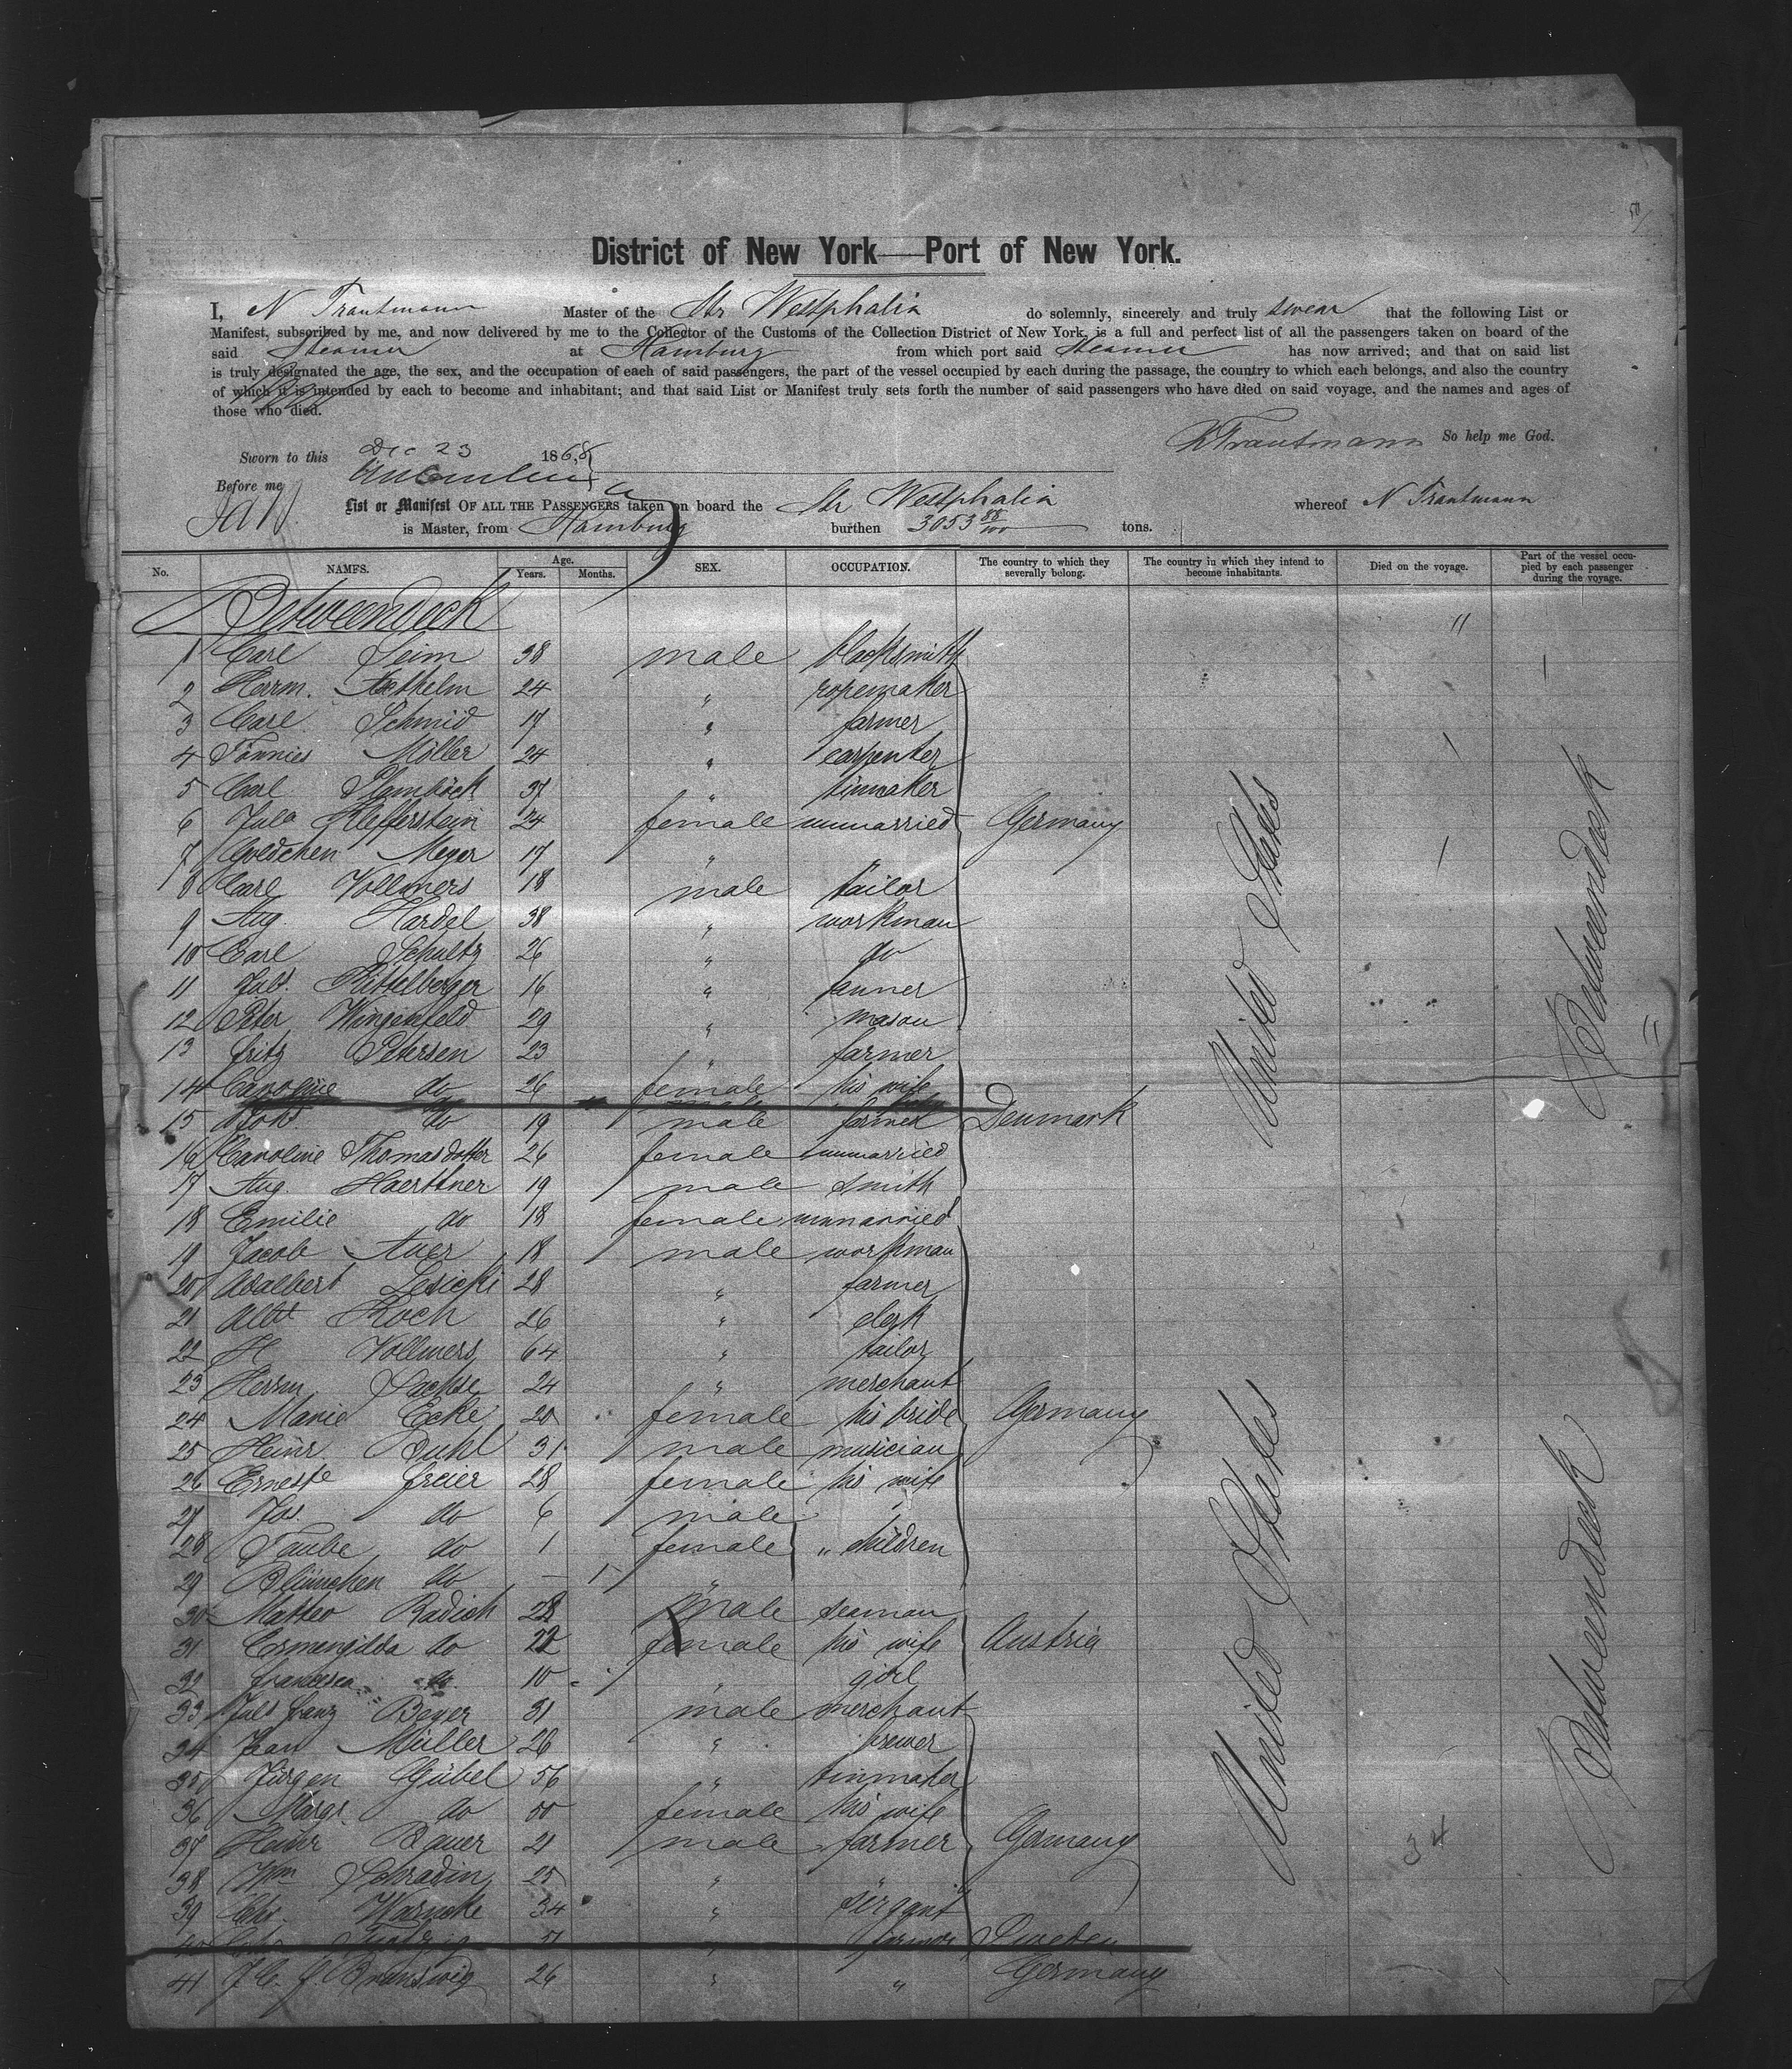 District of New York—Port of New York.
I, N Trautmann Master of the Str Westphalia do solemnly, sincerely and truly swear that the following List or
Manifest, subscribed by me, and now delivered by me to the Collector of the Customs of the Collection District of New York, is a full and perfect list of all the passengers taken on board of the
said Steamer at Hamburg from which port said Steamer has now arrived; and that on said list
is truly designated the age, the sex, and the occupation of each of said passengers, the part of the vessel occupied by each during the passage, the country to which each belongs, and also the country
of which it is intended by each to become and inhabitant; and that said List or Manifest truly sets forth the number of said passengers who have died on said voyage, and the names and ages of
those who died.
N Trautmann So help me God.
Sworn to this Dec 23 1868
Before me
List or Manifest OF ALL THE PASSENGERS taken on board the Str Westphalia whereof N Trautmann
is Master, from Hamburg burthen 3053 88/100 tons.
No. NAMES. Age. Years. Months. SEX. OCCUPATION. The country to which they severally belong. The country in which they intend to become inhabitants. Died on the voyage. Part of the vessel occupied by each passenger during the voyage.
Betweendeck "
1 Carl Seim 38 male blacksmith
2 Herrm. 24 " ropemaker
3 Carl Schmid 17 " farmer
4 Tönnies Möller 24 " carpenter
5 Carl Plambäck 37 " tinmaker
6 Jula Klefferstein 24 female unmarried Germany United States Betweendeck
7 Goldchen Meyer 17 "
8 Carl Vollmers 18 male tailor
9 Aug. Hardel 38 " workman
10 Carl Schultz 26 " do
11 Juls. Kittelberger 16 " tanner
12 Peter Wingenfeld 29 " mason
13 Fritz Petersen 23 " farmer
14 Caroline do 26 female his wife
15 do 19 male farmer Denmark
16 Caroline Thomasdotter 26 female unmarried
17 Aug. Haerttner 19 male smith
18 Emilie do 18 female unmarried
19 Jacob Auer 18 male workman
20 Adalbert Lesicki 28 " farmer
21 Albt Koch 26 " clerk
22 H Vollmers 64 " tailor
23 Herrm Sachse 24 " merchant
24 Marie Ecke 20 female his bride Germany
25 Heinr Buhl 31 male musician
26 Ernest Freier 28 female his wife
27 Jos. do 6 male
28 Taube do 1 female " children
29 Blümchen do – 1 "
30 Matteo Radich 28 male seaman
31 Ermengilda do 22 female his wife Austria United States Betweendeck
32 Francesca do 10 " girl
33 Juls Franz Beyer 31 male merchant
34 Jean Müller 26 " brewer
35 Jürgen Gübel 56 " tinmaker
36 Margr. do 50 female his wife
37 Heinr Bauer 21 male farmer Germany 34
38 Wm Schradin 25 "
39 Chr. Warncke 34 " servant
40 51 " farmer Sweden
41 J. C. F. Brunswig 26 " " Germany